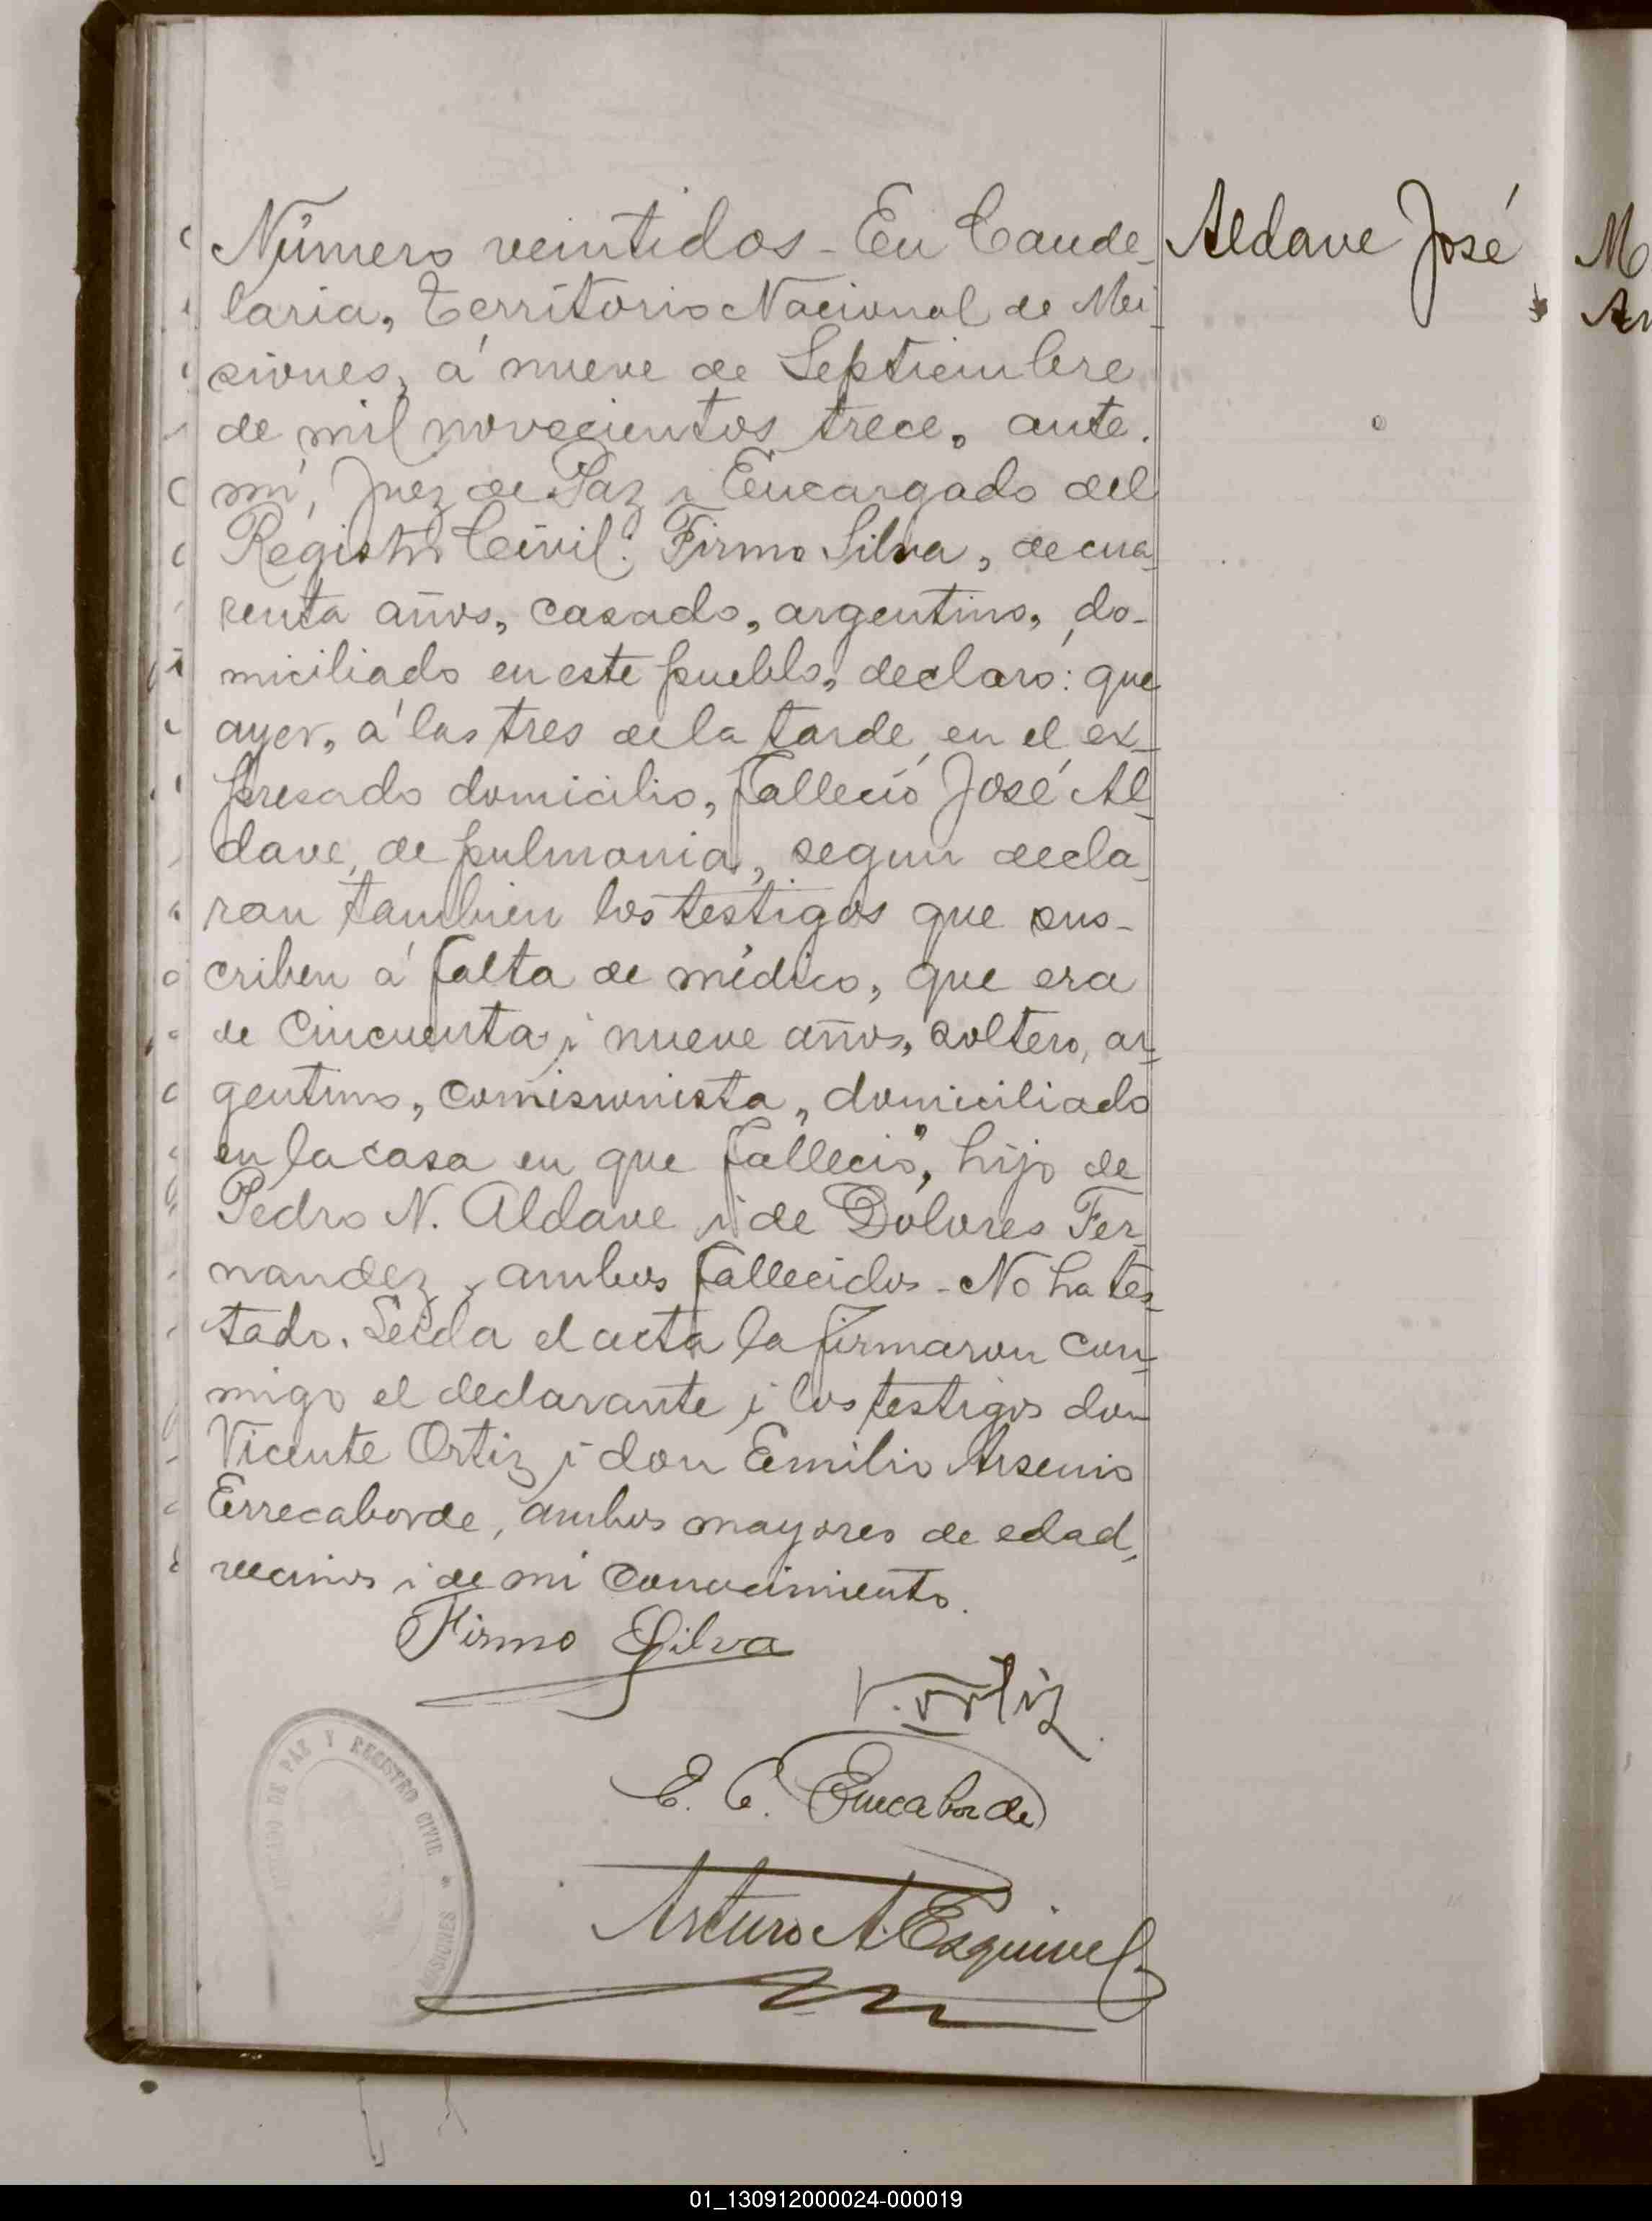 Aldave José
Número veintidos - En Cande-
laria, Territorio Nacional de Mi-
siones, á nueve de Septiembre
de mil novecientos trece, ante
mí, Juez de Paz i Encargado del
Registro Civil: Firmo Silva, de cua-
renta años, casado, argentino, do-
miciliado en este pueblo, declaró: que
ayer, á las tres de la tarde, en el ex-
presado domicilio, falleció José Al-
dave, de pulmonia, segun decla-
ran tambien los testigos que sus-
criben á falta de médico, que era
de cincuenta i nueve años, soltero, ar-
gentino, comisionista, domiciliado
en la casa en que falleció, hijo de
Pedro N. Aldave i de Dolores Fer-
nandez, ambos fallecidos - No ha tes-
tado. Leida el acta la firmaron con-
migo el declarante i los testigos don
Vicente Ortiz i don Emilio Arsenio
Errecaborde, ambos mayores de edad,
vecinos i de mi conocimiento.
Firmo Silva
V. Ortiz
E. Errecaborde
Arturo A. Esquivel
JUZGADO DE PAZ Y REGISTRO CIVIL * MISIONES
01_130912000024-000019